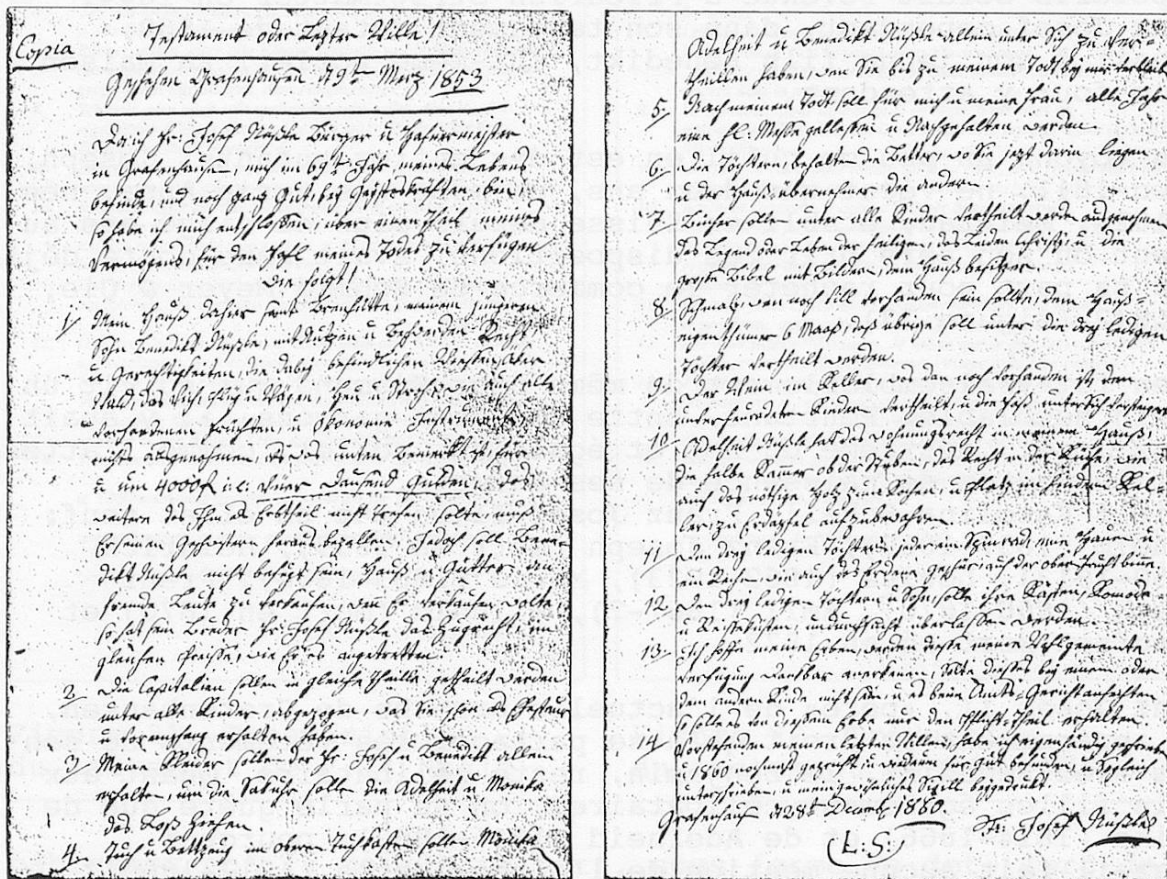 Copia
Testament oder Lezter Wille!
Geschehen Grafenhausen d 9t Merz 1853
Da ich Fr: Josef Nüßle Bürger u Hafnermeister
in Grafenhausen, mich im 69t Jahr meines Lebens
befinde, und noch ganz Gut bey Geisteskräften bin,
so habe ich mich entschlossen, über einen Theil meines
Vermögens, für den Fahl meines Todes zu verfügen
wie folgt!
1. Mein Hauß dahier samt Brenhütte, meinem jüngern
Sohn Benedikt Nüßle, mit Nutzen u Recht
u Gerechtigkeiten, die dabey befindlichen Wiesen Aker
Wald, das Vieh Pflug u Wägen, Heu u Stroh, wie auch alle
vorhandenen Früchten, u Ökonomie Instrumente,
nichts ausgenohmen, als was unten bemerkt ist, für
u um 4000 f i.e: Vüer Dausend Gulden, das
weitere das Ihm als Erbtheil nicht Trefen solte, muß
Er seinen Geschwistern heraus bezallen. Jedoch soll Bene-
dikt Nüßle nicht befugt sein, Hauß u Gütter an
fremde Leute zu verkaufen, wen Er verkaufen wolte,
so hat sein Bruder Fr: Josef Nüßle das Zugrecht, im
gleichen Preisse, wie Er es angetretten.
2. Die Capitalien sollen in gleiche Theille getheilt werden
unter alle Kinder, abgezogen, was Sie schon als Ehesteur
u Vorempfang erhalten haben.
3. Meine Kleider sollen der Fr: Josef u Benedikt allein
erhalten, um die Sakuhr solle die Adelheit u Monika
das Loß ziehen
4. Tuch u Bettzeug im obern Tuchkasten sollen Monika
Adelheit u Benedikt Nüßle allein unter Sich zu ver-
theillen haben, wen Sie bis zu meinem Todt bey mir verbleib
5. Nach meinem Todt soll für mich u meine Frau, alle Jahr
eine hl: Messe gellessen u Nachgehalten werden.
6. Die Töchtern behalten die Better, wo Sie jezt darin liegen
u der Hauß-übernehmer die andern.
7. Bücher sollen unter alle Kinder vertheilt werde ausgenohmen
das Legend oder Leben der Heiligen, das Leiden Christy, u die
große Bibel mit Bilder, dem Hauß besitzer.
8. Schmalz, wen noch vill vorhanden sein sollte, dem Hauß-
eigenthümer 6 Maaß, daß übrige soll unter die drey ledigen
Töchter vertheilt werden.
9. Der Wein im Keller, was dan noch vorhanden ist, dem
unverheurateten Kindern vertheilt, u die Faß unter Sich versteigert
10. Adelheit Nüßle hatt das wohnungsrecht in meinem Hauß,
die halbe Kamer ob der Stuben, das Recht in der Küche, wie
auch das nöthige Holz zum Kochen, u Platz im hindern Kel-
ler, zu Erdäpfel aufzubewahren.
11. Den drey ledigen Töchtern jeder ein Spinrad, eine Hauen u
ein Rechen, wie auch das Erdene geschür, auf der ober
12. Den drey ledigen Töchtern u Sohn, solle ihre Kästen, Komode
u Reissekisten, überlassen werden.
13. Ich hoffe meine Erben, werden diesse meine Wohlgemeinte
Verfügung Dankbar anerkenen, solte diesses bey einem oder
dem andern Kinde nicht sein, u es beim Amts-Gericht anfechten
so solle es von diessem Erbe nur den Pflicht-Theil erhalten.
14. Vorstehenden meinen letzten Willen, habe ich eigenhändig geschrieben
u 1860 nochmahl geprüft u wiederum für gut befunden, u Sogleich
unterschrieben, u mein gewöhnliches Sigill beygedrukt.
Grafenhaus d 28t Decemb: 1860.
(L: S:)
Fr: Josef Nüßle